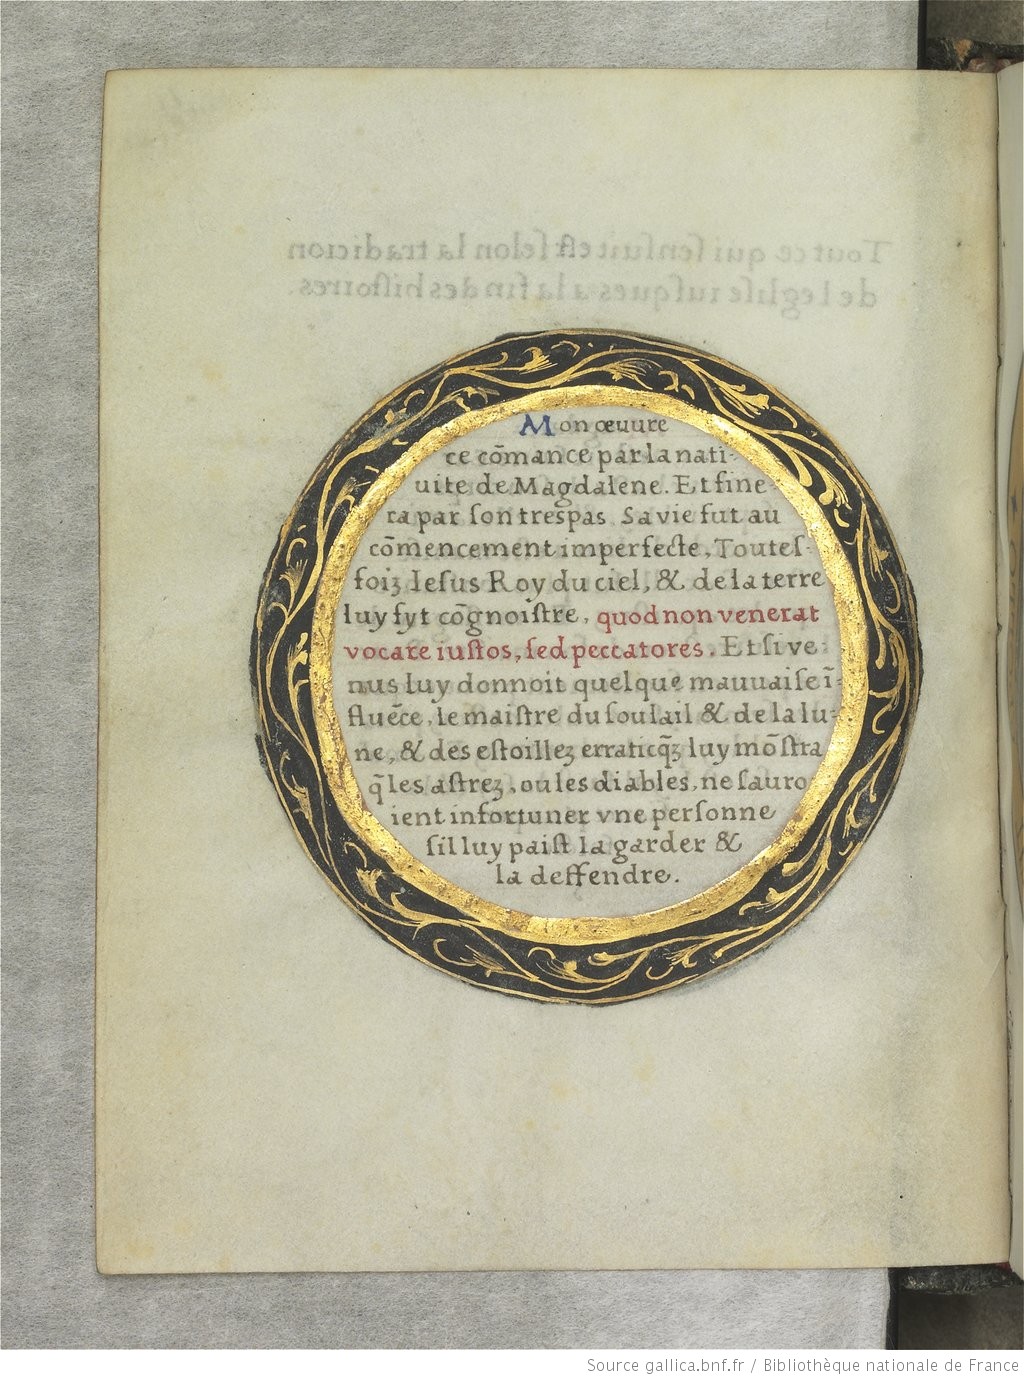 Mon œuure
ce cõmance par la nati-
uite de Magdalene. Et fine-
ra par ſon treſpas. Sa vie fut au
cõmencement imperfecte. Touteſ-
foiʒ Ieſus Roy du ciel, & de la terre
luy fyt cõgnoiſtre, quod non venerat
vocare iuſtos, ſed peccatores. Et ſi ve-
nus luy donnoit quelque mauuaiſe ĩ-
fluẽce, le maiſtre du ſoulail & de la lu-
ne, & des eſtoilleʒ erraticq̃ʒ luy mõſtra
q̃ les aſtreʒ, ou les diables, ne ſauro
ient infortuner vne perſonne
ſil luy paiſt la garder &
la deffendre.
Tout ce qui ſenſuit eſt ſelon la tradicion
de legliſe iuſques a la fin des hiſtoires.
Source gallica.bnf.fr / Bibliothèque nationale de France